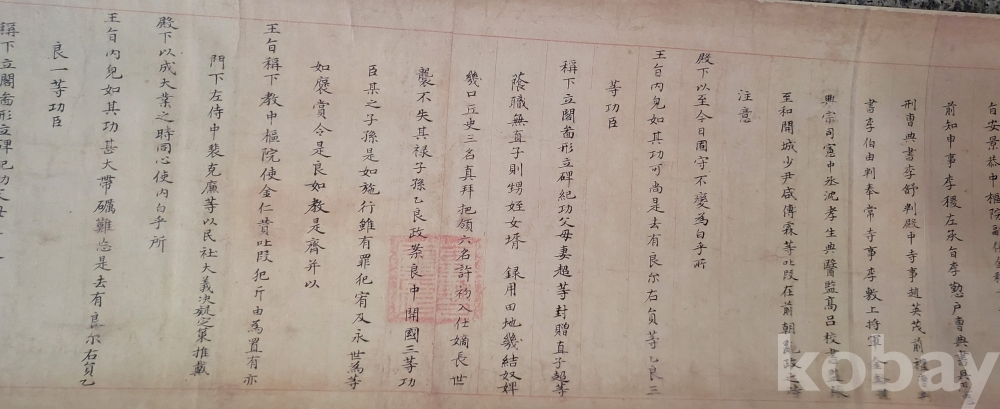 旨安景恭中樞院副使金
前知申事李稷左承旨李懃戶曹典書吳思忠
刑曹典書李舒判殿中寺事趙英茂前禮曹
書李伯由判奉常寺事李敷上將軍金
典宗司憲中丞沈孝生典醫監高呂校書監
至和開城少尹咸傅霖等叱段在前朝亂政之時
注意
殿下以至今日固守不變爲白乎所
王旨內皃如其功可尚是去有良尔右員等乙良三
等功臣
稱下立閣畫形立碑紀功父母妻超等封贈直子超等
蔭職無直子則甥姪女壻 錄用田地幾結奴婢
幾口丘史三名真拜把領六名許初入仕嫡長世
襲不失其祿子孫乙良政案良中開國三等功
臣某之子孫是如施行雖有罪犯宥及永世爲等
如褒賞令是良如教是齊并以
王旨稱下教中樞院使金仁贊叱段犯斤由爲置有亦
門下左侍中裴克廉等以民社大義決疑定策推戴
殿下以成大業之時同心使內白乎所
王旨內皃如其功甚大帶礪難忘是去有良尔右員乙
良一等功臣
稱下立閣畫形立碑紀功父母
kobay